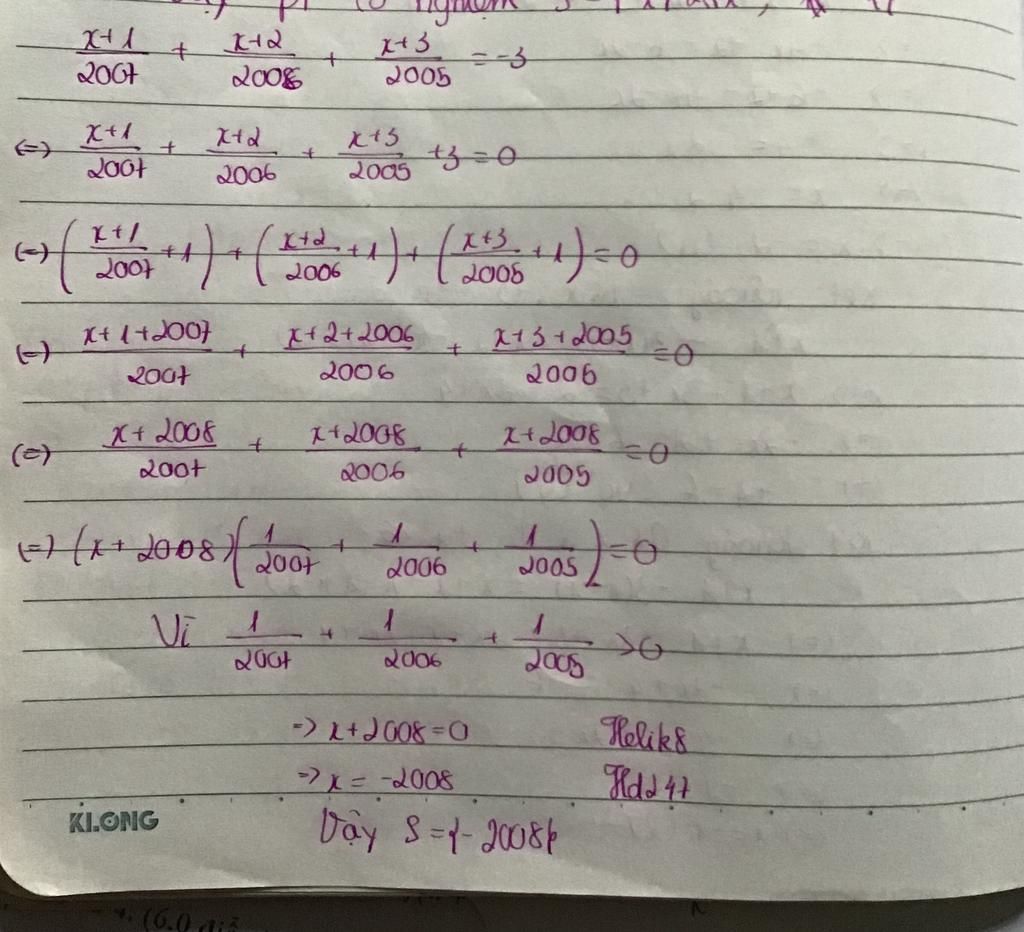 x+1/2007 + x+2/2006 + x+3/2005 = -3
<=> x+1/2007 + x+2/2006 + x+3/2005 +3 = 0
<=> (x+1/2007 + 1) + (x+2/2006 + 1) + (x+3/2005 + 1) = 0
<=> x+1+2007/2007 + x+2+2006/2006 + x+3+2005/2006 = 0
<=> x+2008/2007 + x+2008/2006 + x+2008/2005 = 0
<=> (x+2008)(1/2007 + 1/2006 + 1/2005) = 0
Vì 1/2007 + 1/2006 + 1/2005 > 0
=> x+2008=0 Helik8
=> x = -2008 Hd247
KLONG Vậy S={-2008}